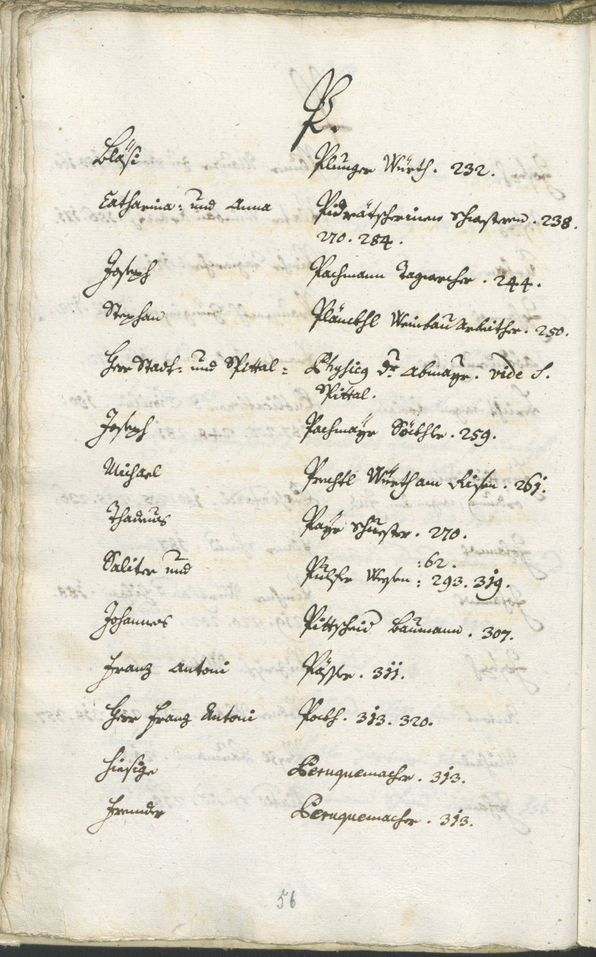 P.
Bläsi Plunger Würth. 232.
Catharina: und Anna Pidrätscherinen Schwestern. 238.
270. 284.
Joseph Pachmann Tagwercher. 244.
Stephan Plänckhl Weinbau Arbeither. 250.
Herr Stadt: und Spittal: Physicg Dr Abmayr. vide S.
Spittal.
Joseph Pachmayr 259.
Michael Prechtl Würth am Risen. 261.
Thadeus Payr Schuester. 270.
:62.
Saliter und Pulfer Wesen: 293. 319.
Johannes Pittscheid Baumann. 307.
Franz Antoni Pässler. 311.
Herr Franz Antoni Poth. 313. 320.
Hiesige Peruquemacher. 313.
Frembde Peruquemacher. 313.
56